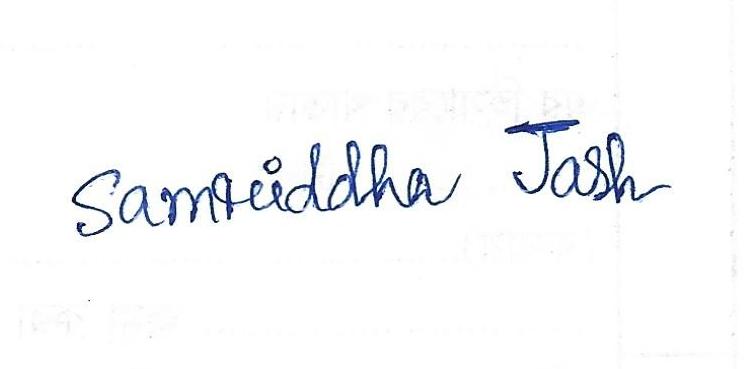 Samriddha Jash